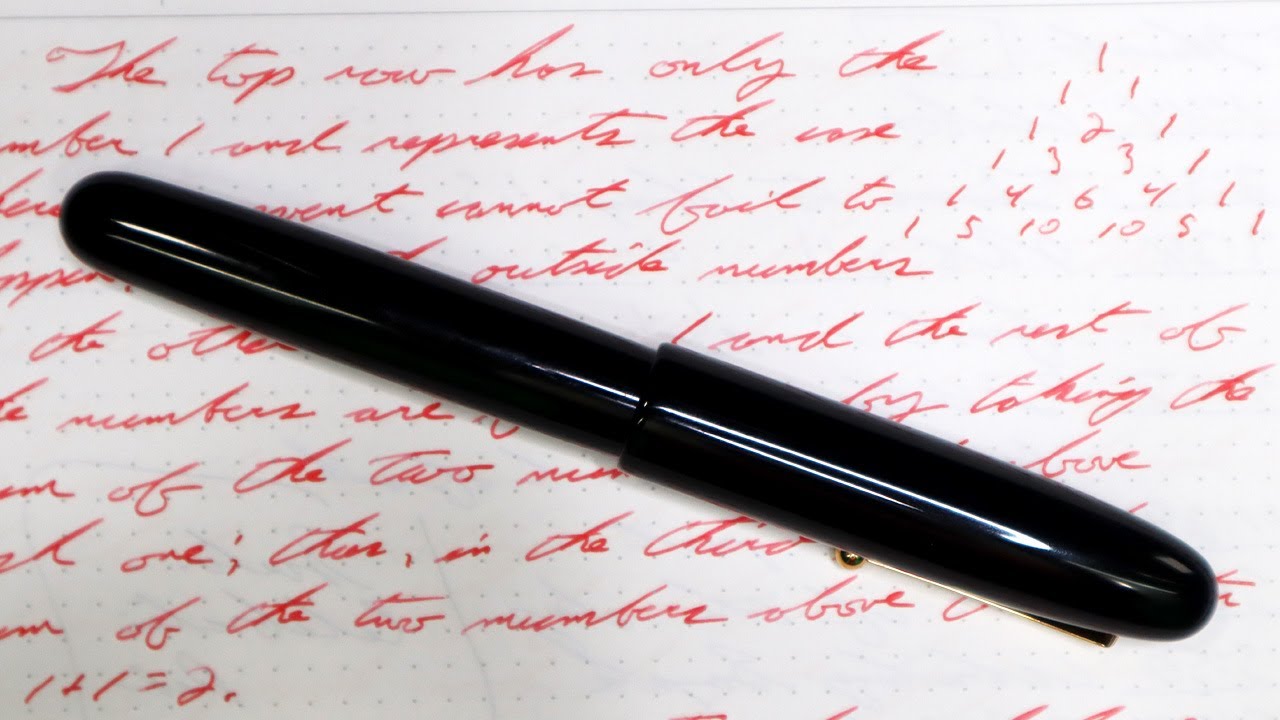 The top row has only the
1
1 1
mber 1 and represents the case
1 2 1
1 3 3 1
cannot fail to
1 4 6 4 1
1 5 10 10 5 1
outside numbers
the othe 1 and the rest of
numbers are by taking the
um of the two num bove
one; thus, in the third
um of the two numbers above
1+1=2.